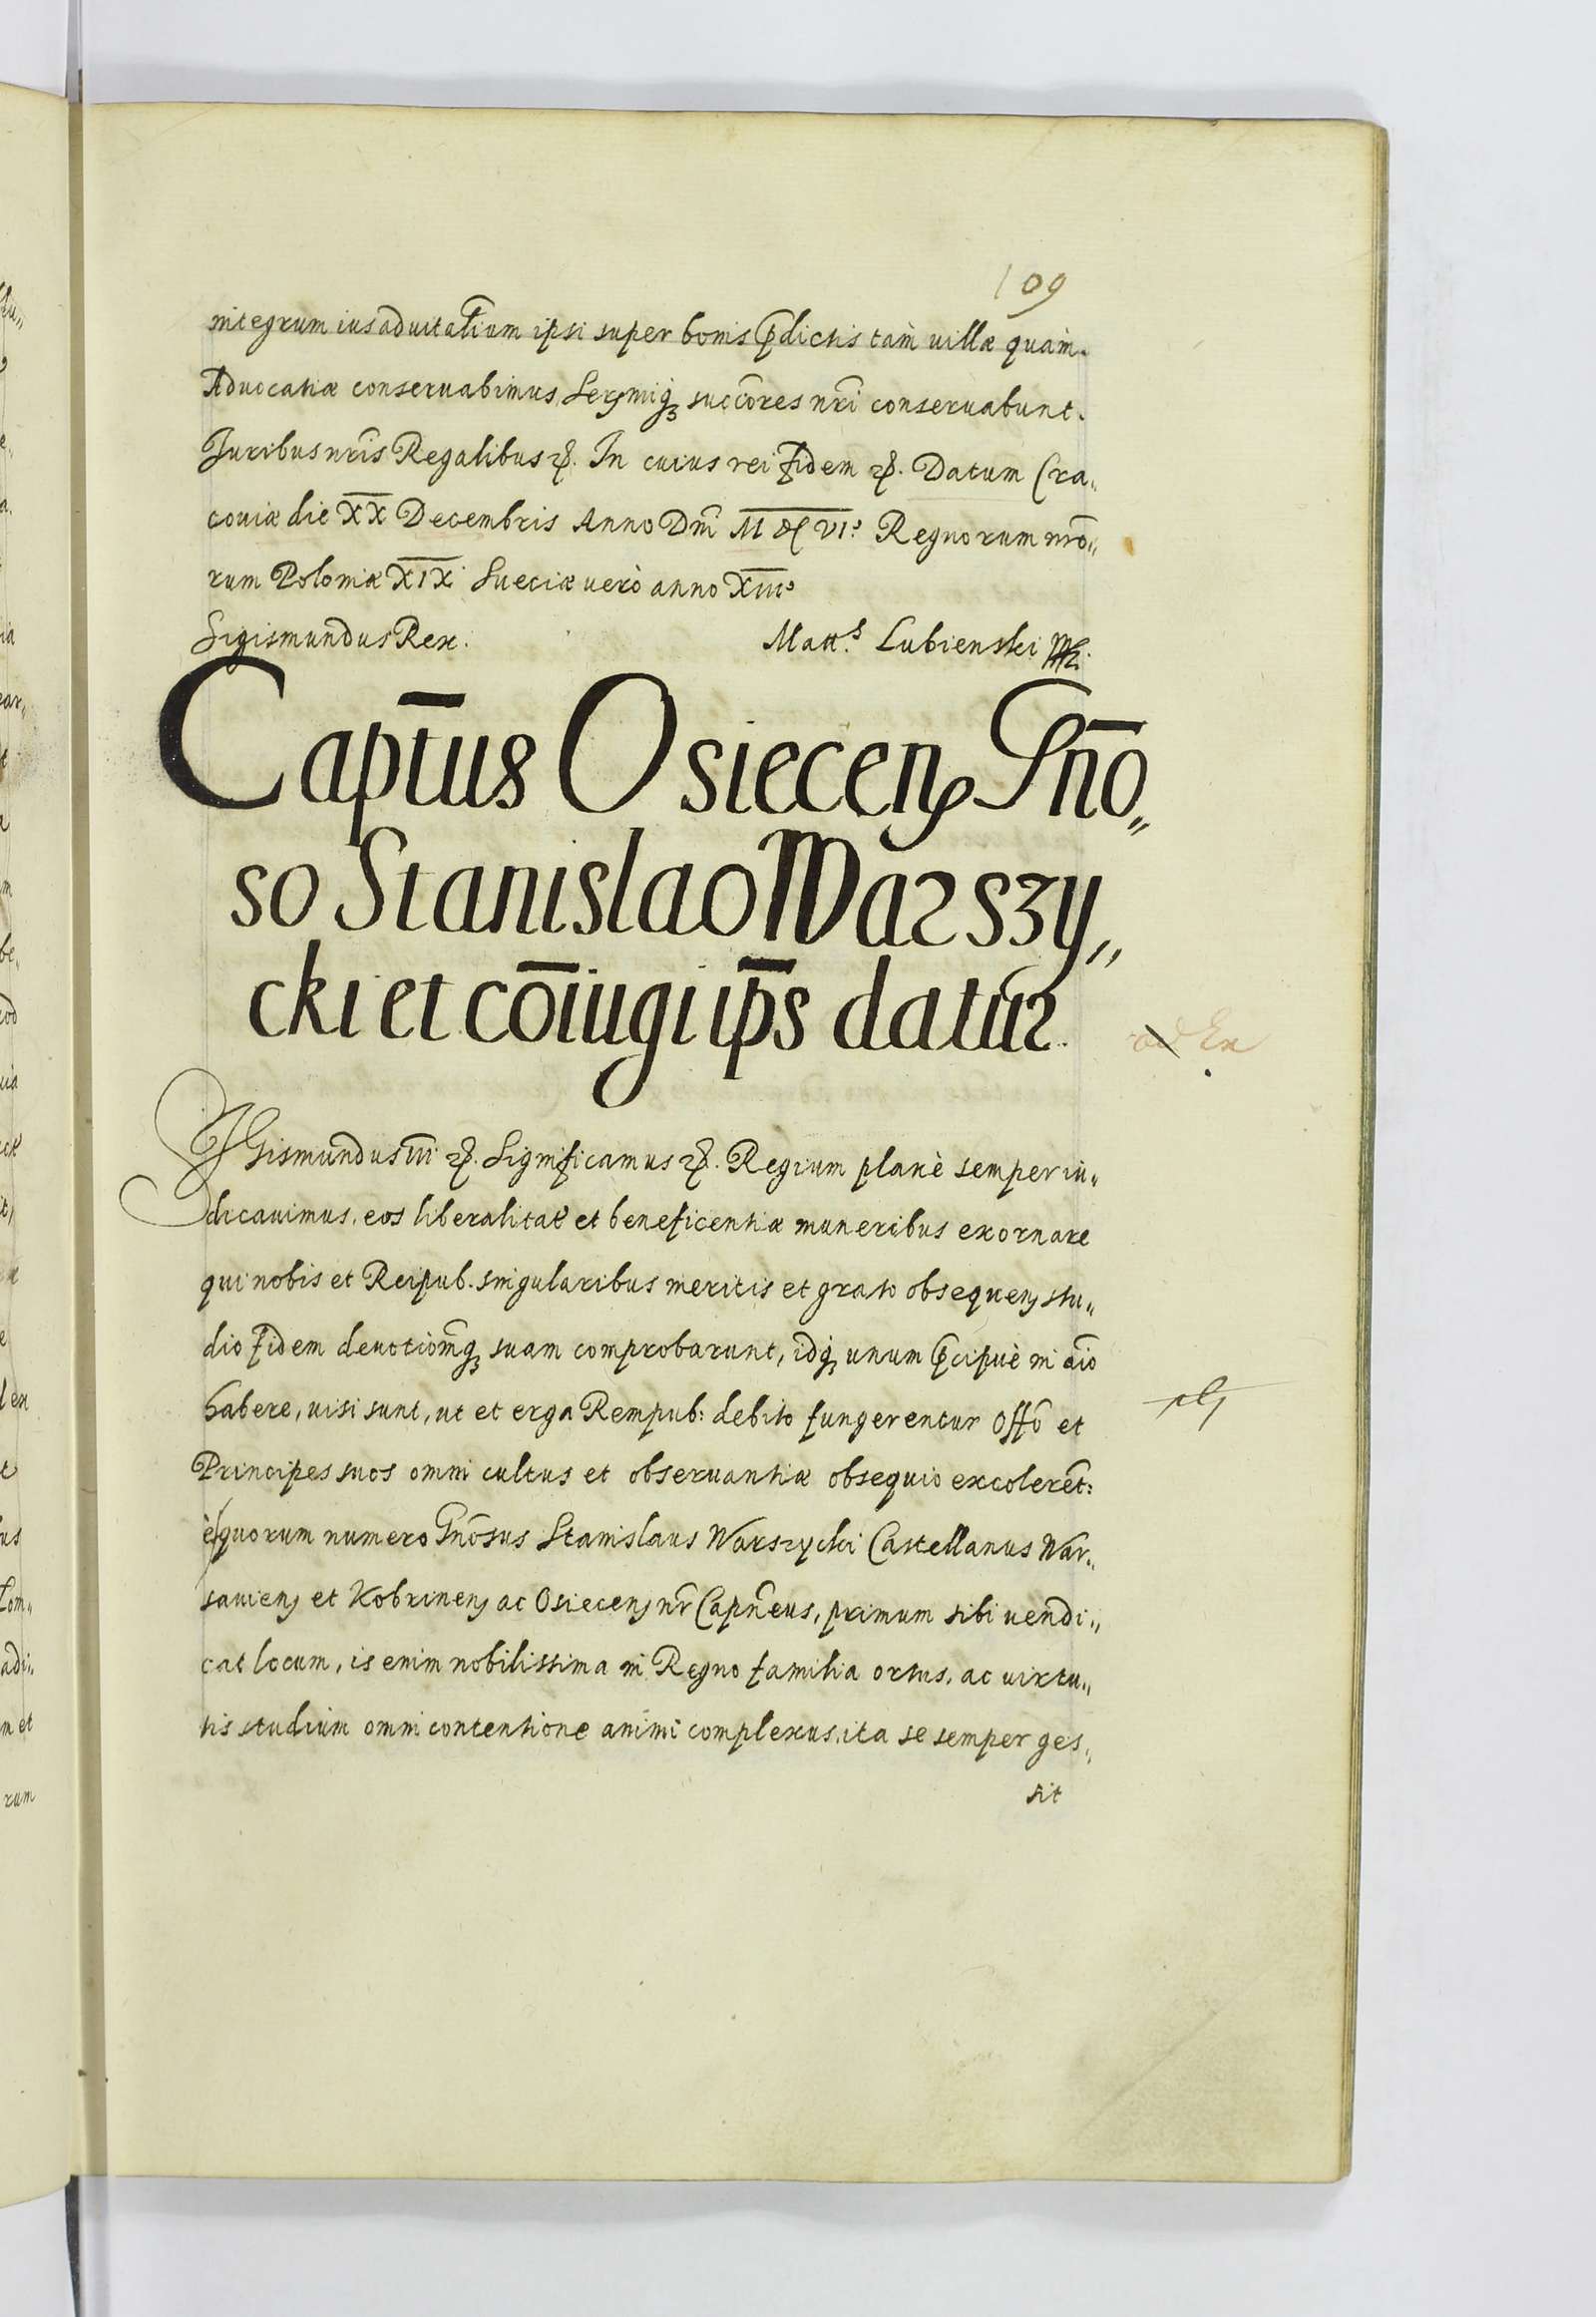 109
integrum ius aduitaliūm ipsi super bonis p̄dictis tam uillæ quam.
Aduocatiæ conseruabimus Serꝫmiqꝫ succōres nr̄i conseruabunt.
Juribus nr̄is Regalibus ꝛc̄. In cuius rei fidem ꝛc̄. Datum Cra„
couiæ die X̅X̅ Decembris Anno Dn̄i M DC VI° Regnorum nr̄o„
rum Poloniæ X̅I̅X̅ Sueciæ uerò anno XIII°
Sigismundus Rex. Matt.s Lubienski
Capt̄us Osieceñ Gn̄o„
so Stanislao Warszy„
cki et cōiugi ip̄s datur
Sigismundus III ꝛc̄. Significamus ꝛc̄. Regium planè semper iu„
dicauimus, eos liberalitatẽ et beneficentiæ muneribus exornare
qui nobis et Reipub. singularibus meritis et grato obsequenꝫ stu„
dio fidem deuotiōmqꝫ suam comprobarunt, idqꝫ unum p̄cipuè in aīo
habere, uisi sunt, ut et erga Rempub: debito fungerentur offō et
Principes suos omni cultus et obseruantiæ obsequio excolerēt:
è quorum numero Gn̄osus Stanislaus Warszycki Castellanus War„
sauienꝫ et Kobrinenꝫ ac Osiecenꝫ nr̄ Capn̄eus, primum sibi uendi„
cat locum, is enim nobilissima in Regno familia ortus, ac uirtu„
tis studium omni contentione animi complexus, ita se semper ges„
sit